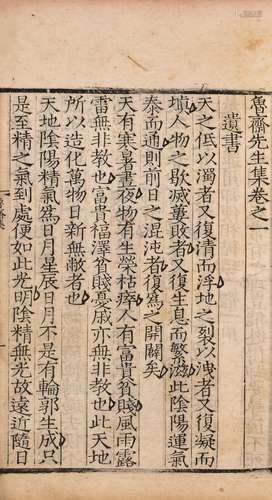 魯齋先生集卷之一
遺書
天之低以濁者又復清而浮地之裂以洩者又復凝而
墳人物之歇滅薧敗者又復生息而繁滋此陰陽運氣
泰而通則前日之混沌者復為之開闢矣
天有寒暑晝夜物有生榮枯瘁人有富貴貧賤風雨露
雷無非教也富貴福澤貧賤憂戚亦無非教也此天地
所以造化萬物日新無敝者也
天地陰陽精氣為日月星辰日月不是有輪郭生成只
是至精之氣到處便如此光明陰精無光故遠近隨日